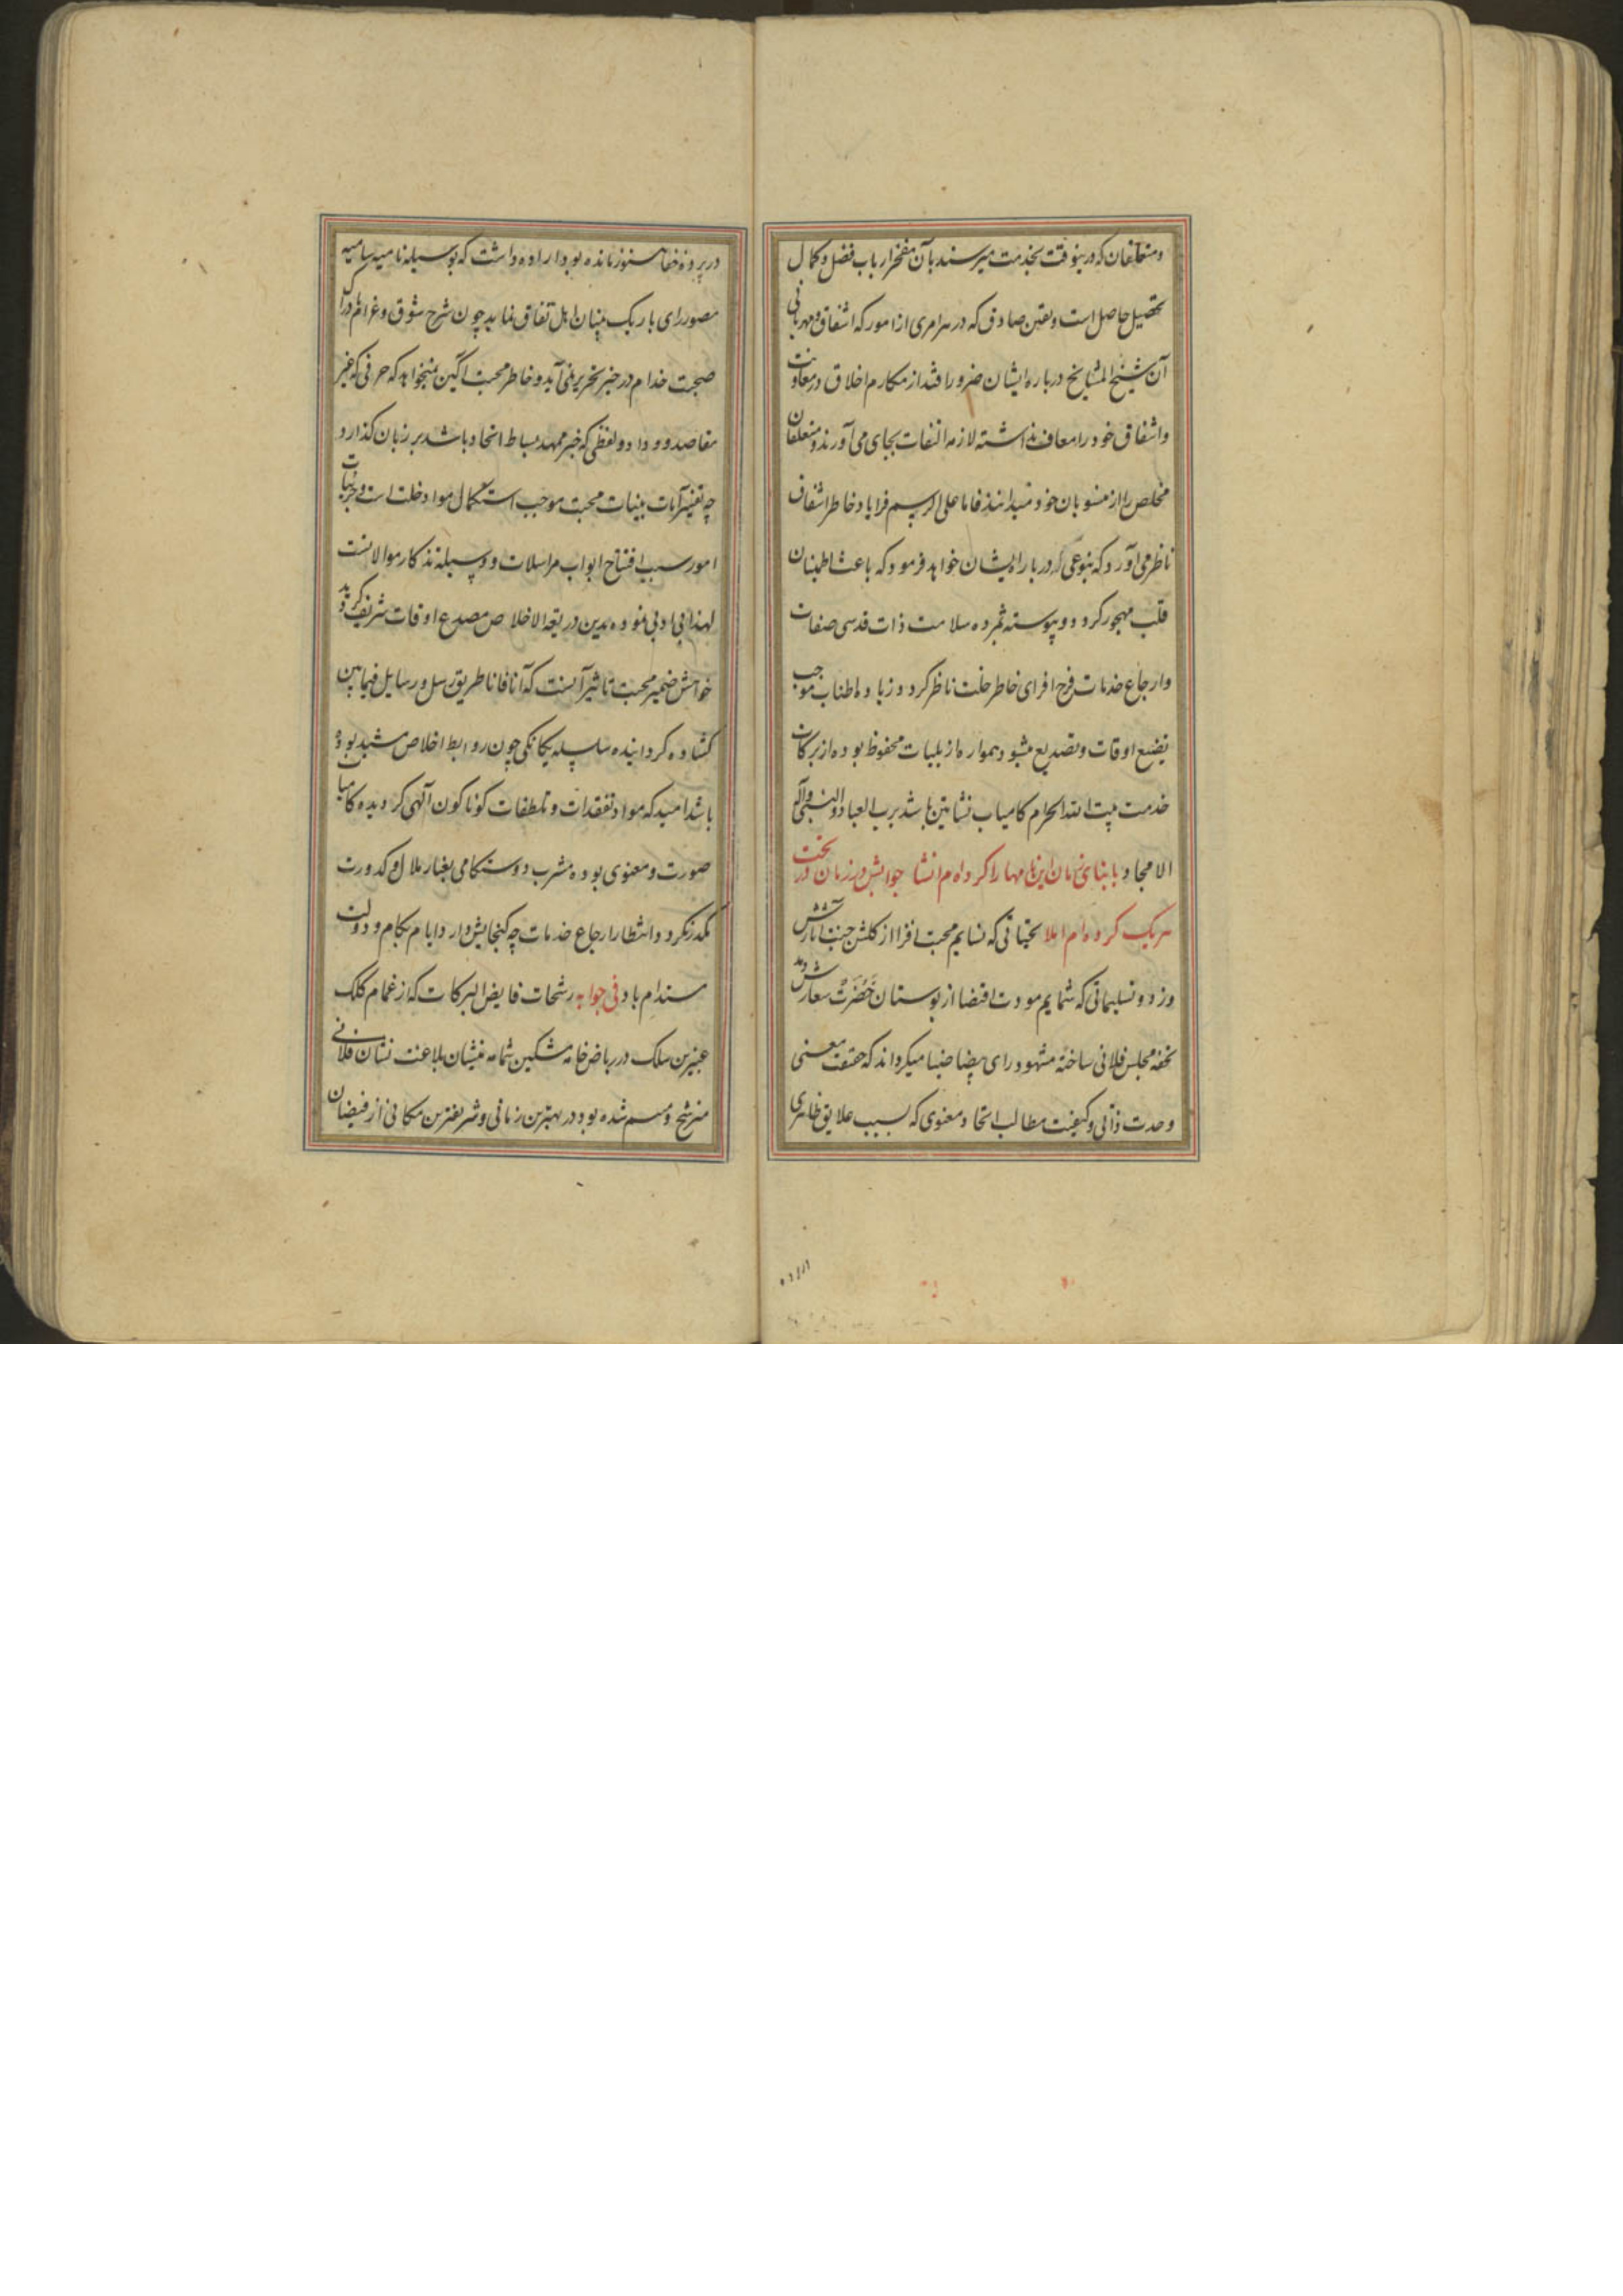 ومتعلقان که درینوقت بخدمت میرسند بآن مفخر ارباب فضل وکمال
تحصیل حاصل است ویقین صادق که در هر امری از امور که اشفاق ومهربانی
آن شیخ المشایخ درباره ایشان ضرور افتد از مکارم اخلاق در معاونت
واشفاق خود را معاف نداشته لازمه التفات بجای می آورند ومتعلقان
مخلص را از منسوبان خود میدانند فاما علی الرسم فرا یاد خاطر اشفاق
ناظر می آورد که بنوعی در باره ایشان خواهد فرمود که باعث اطمینان
قلب مهجور کردد وپیوسته ثمرده سلامت ذات قدسی صفات
وارجاع خدمات فرح افزای خاطر خلت ناظر کردد وزیاده اطناب موجب
تضیع اوقات وتصدیع میشود همواره از بلیات محفوظ بوده از برکات
خدمت بیت الله الحرام کامیاب نشاتین باشد برب العباد والنبی وآله
الامجاد بابنای زمان این نامها را کرده ام انشا جوابش در زمان در تحت
هریک کرده ام املا تحیاتی که نسایم محبت افزا از کلشن جنت آثارش
وزد وتسلیماتی که شمایم مودت اقتضا از بوستان خضرت شعارش دمد
تحفه مجلس فلانی ساخته مشهود رای بیضا ضیا میکرداند که حقیقت معنی
وحدت ذاتی وکیفیت مطالب اتحاد معنوی که بسبب علایق ظاهری
در پرده خفا مستور مانده بود اراده داشت که بوسیله نامیه سامیه
مصور رای باریک بینان اهل تفاق نماید چون شرح شوق وغرام ادراک
صحبت خدام در حیز تحریر نمی آید وخاطر محبت آکین نمیخواهد که حرفی که غیر
مقاصد وداد ولفظی که غیر ممهد بساط اتحاد باشد بر زبان کذارد
چه تفسیر آیات بینات محبت موجب استکمال مواد خلت است وجزئیات
امور سبب افتتاح ابواب مراسلات ووسیله تذکار موالاتست
لهذا بی ادبی نموده بدین ذریعة الاخلاص مصدع اوقات شریف کردید
خواهش ضمیر محبت تاثیر آنست که آنا فانا طریق رسل ورسایل فیمابین
کشاده کردانیده سلسله یکانکی چون روابط اخلاص مشید بوده
باشد امید که مواد تفقدات وتلطفات کوناکون آلهی کردیده کامیاب
صورت ومعنوی بوده مشرب دوستکامی بغبار ملال وکدورت
مکدر نکردد وانتظار ارجاع خدمات چه کنجایش دارد ایام بکام ودولت
مستدام باد فی جوابه رشحات فایض البرکات که از غمام کلک
عنبرین سلک در ریاض خامه مشکین شمامه منشیان بلاغت نشان فلانی
مترشح ومرتسم شده بود در بهترین زمانی وشریفترین مکانی از فیضان